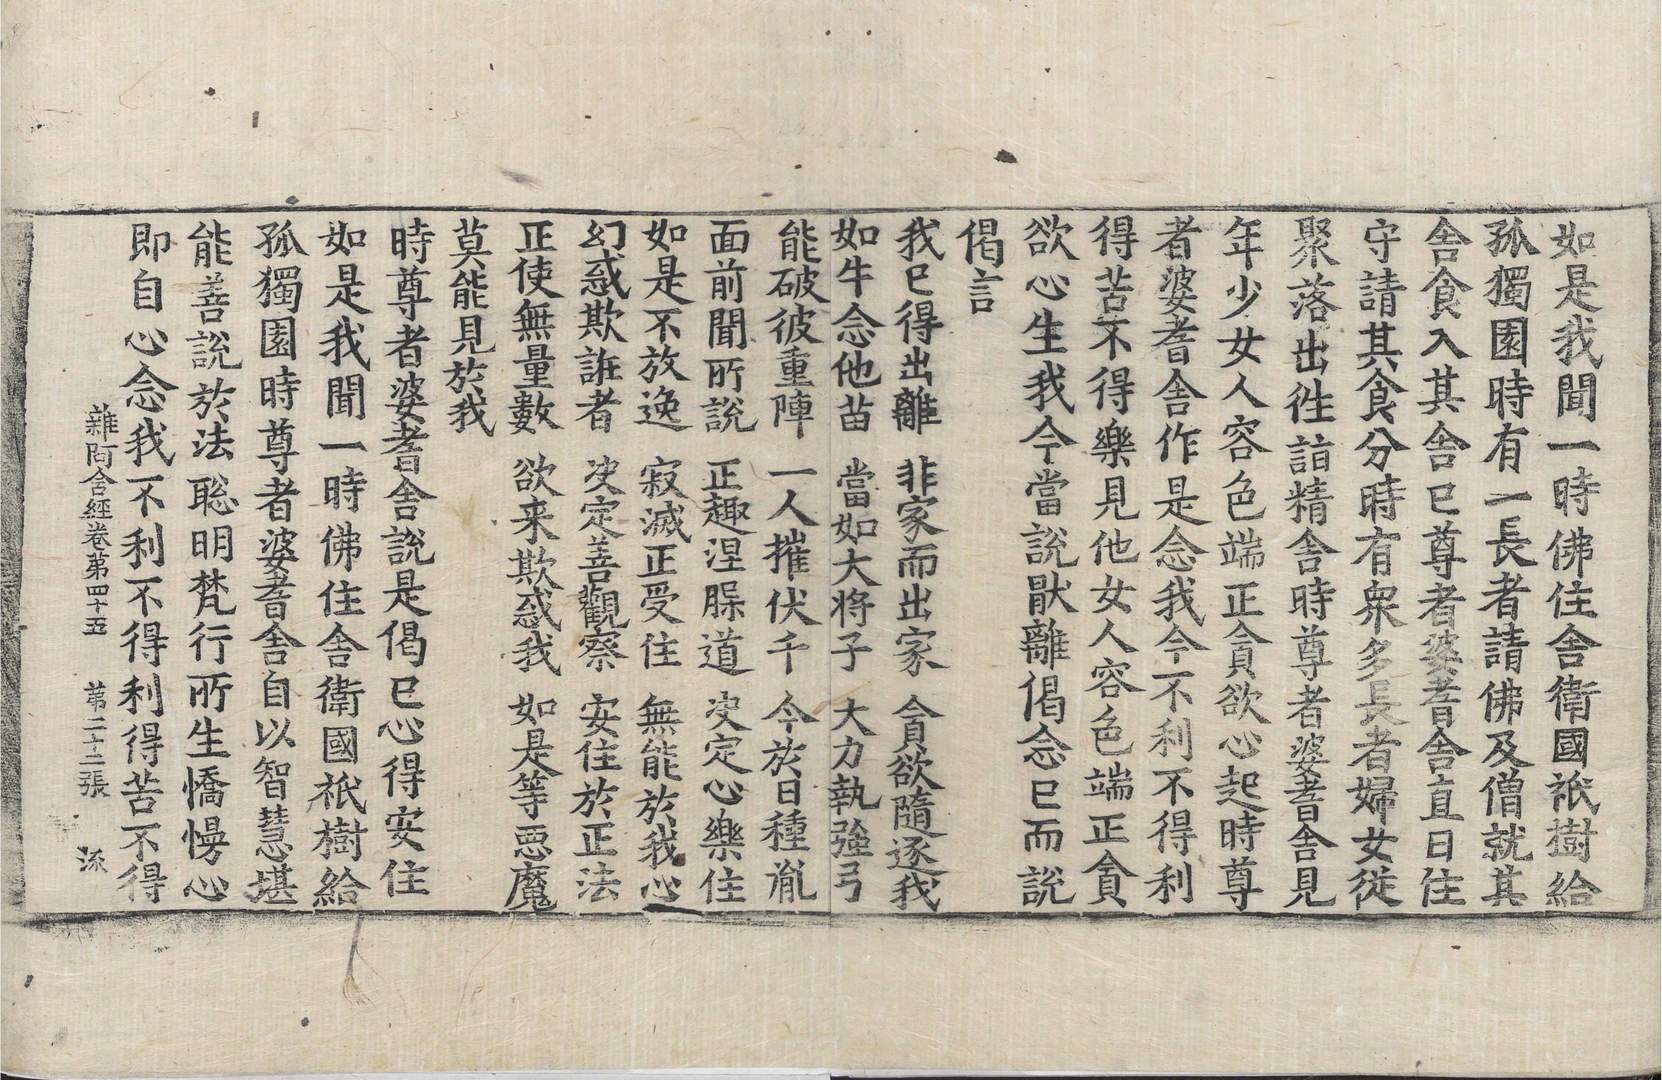 如是我聞一時佛住舍衛國祇樹給
孤獨園時有一長者請佛及僧就其
舍食入其舍已尊者婆耆舍直日住
守請其食分時有衆多長者婦女從
聚落出往詣精舍時尊者婆耆舍見
年少女人容色端正貪欲心起時尊
者婆耆舍作是念我今不利不得利
得苦不得樂見他女人容色端正貪
欲心生我今當說猒離偈念已而說
偈言
我已得出離 非家而出家 貪欲隨逐我
如牛念他苗 當如大將子 大力執強弓
能破彼重陣 一人摧伏千 今於日種胤
面前聞所說 正趣涅槃道 决定心樂住
如是不放逸 寂滅正受住 無能於我心
幻惑欺誑者 决定善觀察 安住於正法
正使無量數 欲来欺惑我 如是等惡魔
莫能見於我
時尊者婆耆舍說是偈已心得安住
如是我聞一時佛住舍衛國祇樹給
孤獨園時尊者婆耆舍自以智慧堪
能善說於法聡明梵行所生憍慢心
即自心念我不利不得利得苦不得
雜阿含經卷第四十五 第二十二張